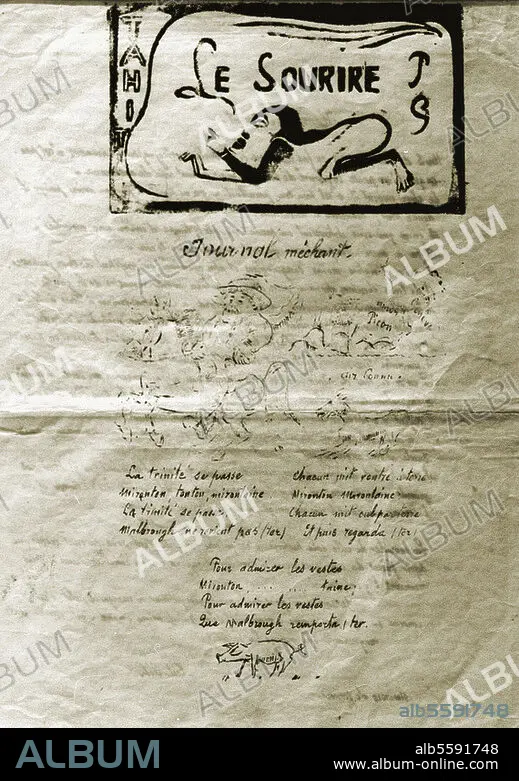 TAHITI
LE SOURIRE
Journal méchant.
Picon
air connu.
La trinité se passe
Mironton, tonton, mirontaine
La trinité se passe
Malbrough ne revient pas (ter)
Chacun mit ventre à terre
Mironton Mirontaine
Chacun mit cul par terre
Et puis regarda (ter)
Pour admirer les vestes
Mironton, ... .... taine,
Pour admirer les vestes
Que Malbrough remporta (ter.
ALBUM
alb5591748
ALBUM
alb5591748
www.album-online.com